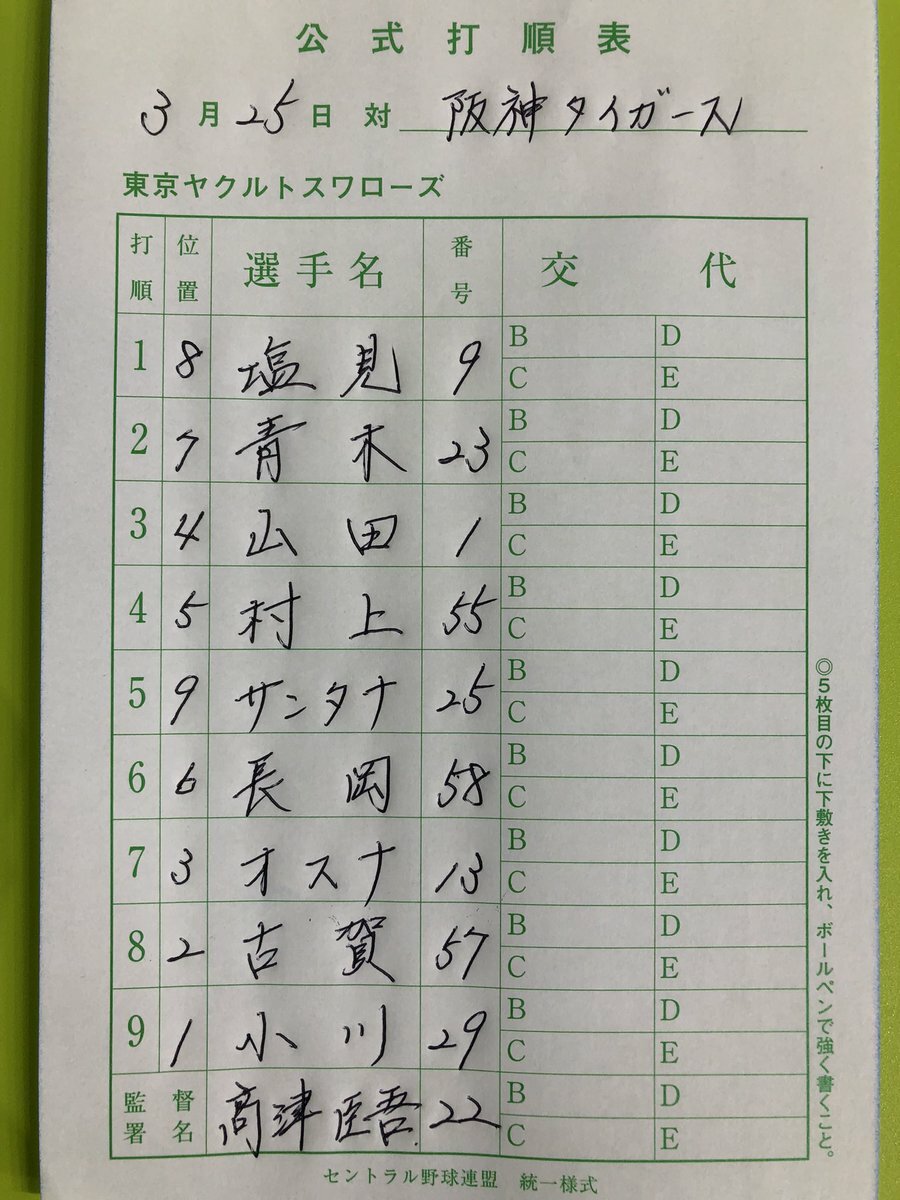 公式打順表
3月25日 対 阪神タイガース
東京ヤクルトスワローズ
打順 位置 選手名 番号 交代
1 8 塩見 9 B D
C E
2 7 青木 23 B D
C E
3 4 山田 1 B D
C E
4 5 村上 55 B D
C E
5 9 サンタナ 25 B D
C E
6 6 長岡 58 B D
C E
7 3 オスナ 13 B D
C E
8 2 古賀 57 B D
C E
9 1 小川 29 B D
C E
監督署名 高津臣吾 22 B D
C E
◎5枚目の下に下敷きを入れ、ボールペンで強く書くこと。
セントラル野球連盟 統一様式